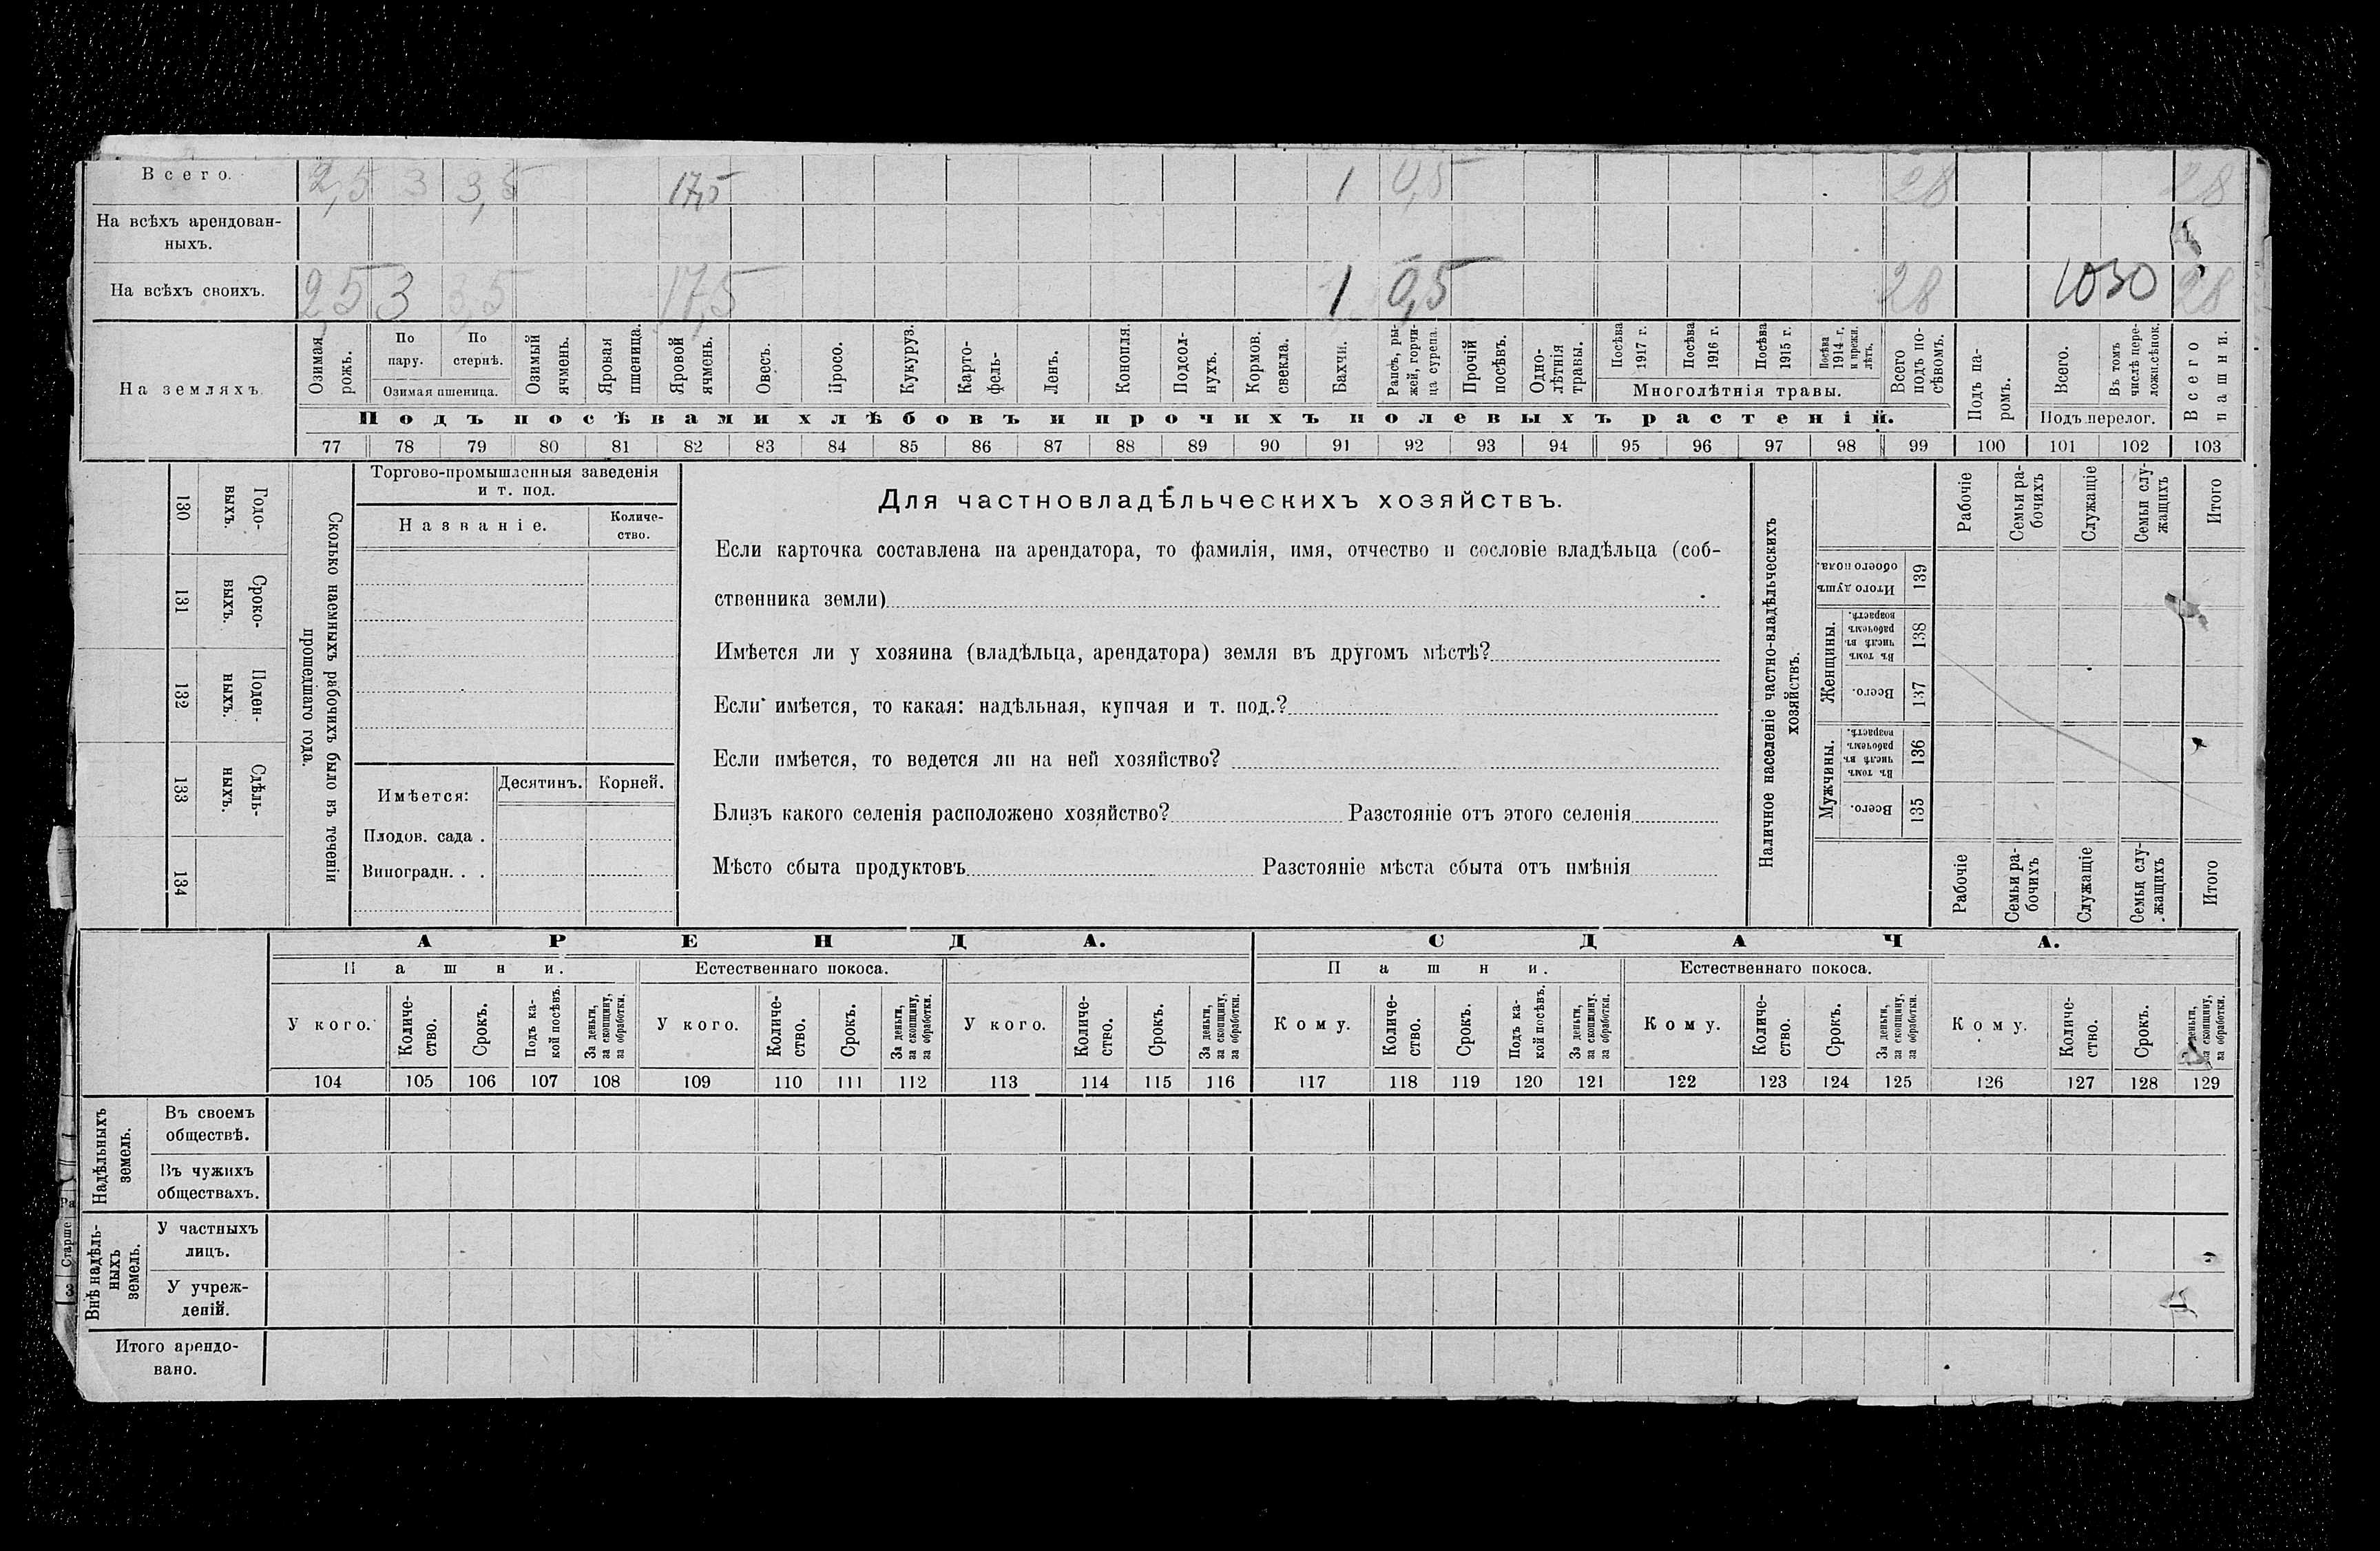 Всего. 2,5 3 3,5 17,5 1 0,5 28 28
На всѣхъ арендован-
ныхъ.
На всѣхъ своихъ. 2,5 3 3,5 17,5 1 0,5 28 1030 28
На земляхъ
Озимая рожь.
По пару.
По стернѣ.
Озимая пшеница.
Озимый ячмень.
Яровая пшеница.
Яровой ячмень.
Овесъ.
Просо.
Кукуруз.
Карто-
фель-
Ленъ.
Конопля.
Подсол-
нухъ.
Кормов.
свекла.
Бахчи.
Рапсъ, ры-
жей, горчи-
ца сурепа.
Прочій
посѣвъ.
Одно-
лѣтнія
травы.
Посѣва 1917 г.
Посѣва 1916 г.
Посѣва 1915 г.
Посѣва 1914 г. и прежн. лѣтъ.
Многолѣтнія травы.
Всего подъ по-
сѣвомъ.
Подъ посѣвами хлѣбовъ и прочихъ полевыхъ растеній.
Подъ па-
ромъ.
Всего.
Въ томъ числѣ пере-
ложн.сѣнок.
Подъ перелог.
Всего пашни.
77 78 79 80 81 82 83 84 85 86 87 88 89 90 91 92 93 94 95 96 97 98 99 100 101 102 103
130 Годо-
выхъ.
131 Сроко-
выхъ.
132 Поден-
ныхъ.
133 Сдѣль-
ныхъ.
134
Сколько наемныхъ рабочихъ было въ теченіи
прошедшаго года.
Торгово-промышленныя заведенія
и т. под.
Названіе.
Количе-
ство.
Имѣется: Десятинъ. Корней.
Плодов. сада .
Виноградн. . .
Для частновладѣльческихъ хозяйствъ.
Если карточка составлена на арендатора, то фамилія, имя, отчество и сословіе владѣльца (соб-
ственника земли)
Имѣется ли у хозяина (владѣльца, арендатора) земля въ другомъ мѣстѣ?
Если имѣется, то какая: надѣльная, купчая и т. под.?
Если имѣется, то ведется ли на ней хозяйство?
Близъ какого селенія расположено хозяйство? Разстояніе отъ этого селенія
Мѣсто сбыта продуктовъ Разстояніе мѣста сбыта отъ имѣнія
Наличное населеніе частно-владѣльческихъ
хозяйствъ.
Рабочіе
Семьи ра-
бочихъ
Служащіе
Семьи слу-
жащихъ
Итого
Итого душъ обоего пола. 139
Женщины.
Въ томъ числѣ въ рабочемъ возрастѣ. 138
Всего. 137
Мужчины.
Въ томъ числѣ въ рабочемъ возрастѣ. 136
Всего. 135
Рабочіе
Семьи ра-
бочихъ
Служащіе
Семьи слу-
жащихъ
Итого
АРЕНДА. СДАЧА.
Пашни. Естественнаго покоса. Пашни. Естественнаго покоса.
У кого.
Количе-
ство.
Срокъ.
Подъ ка-
кой посѣвъ.
За деньги,
за скопщину,
за обработки.
У кого.
Количе-
ство.
Срокъ.
За деньги,
за скопщину,
за обработки.
У кого.
Количе-
ство.
Срокъ.
За деньги,
за скопщину,
за обработки.
Кому.
Количе-
ство.
Срокъ.
Подъ ка-
кой посѣвъ.
За деньги,
за скопщину,
за обработки.
Кому.
Количе-
ство.
Срокъ.
За деньги,
за скопщину,
за обработки.
Кому.
Количе-
ство.
Срокъ.
деньги,
за скопщину,
за обработки.
104 105 106 107 108 109 110 111 112 113 114 115 116 117 118 119 120 121 122 123 124 125 126 127 128 129
Надѣльныхъ
земель.
Въ своемъ
обществѣ.
Въ чужихъ
обществахъ.
Внѣ надѣль-
ныхъ
земель.
У частныхъ
лицъ.
У учреж-
деній.
Итого арендо-
вано.
Старше